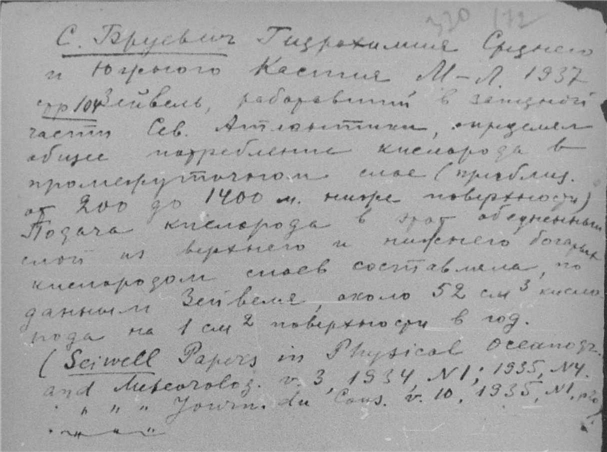 330 172
С. Бруевич Гидрохимия Среднего
и Южного Каспия М-Л. 1937
стр 104 Зейвель, работавший в западной
части Сев. Атлантики, определял
общее потребление кислорода в
промежуточном слое (приблиз.
от 200 до 1400 м. ниже поверхности)
Подача кислорода в этот обедненный
слой из верхнего и нижнего богатых
кислородом слоев составляла, по
данным Зейвеля, около 52 см³ кисло
рода на 1 см² поверхности в год.
(Seiwell Papers in Physical Oceanogr.
and Meteorolog. v. 3, 1934 N1; 1935, N4.
" " " Journ. du Cons. v. 10, 1935, N1,
" " "